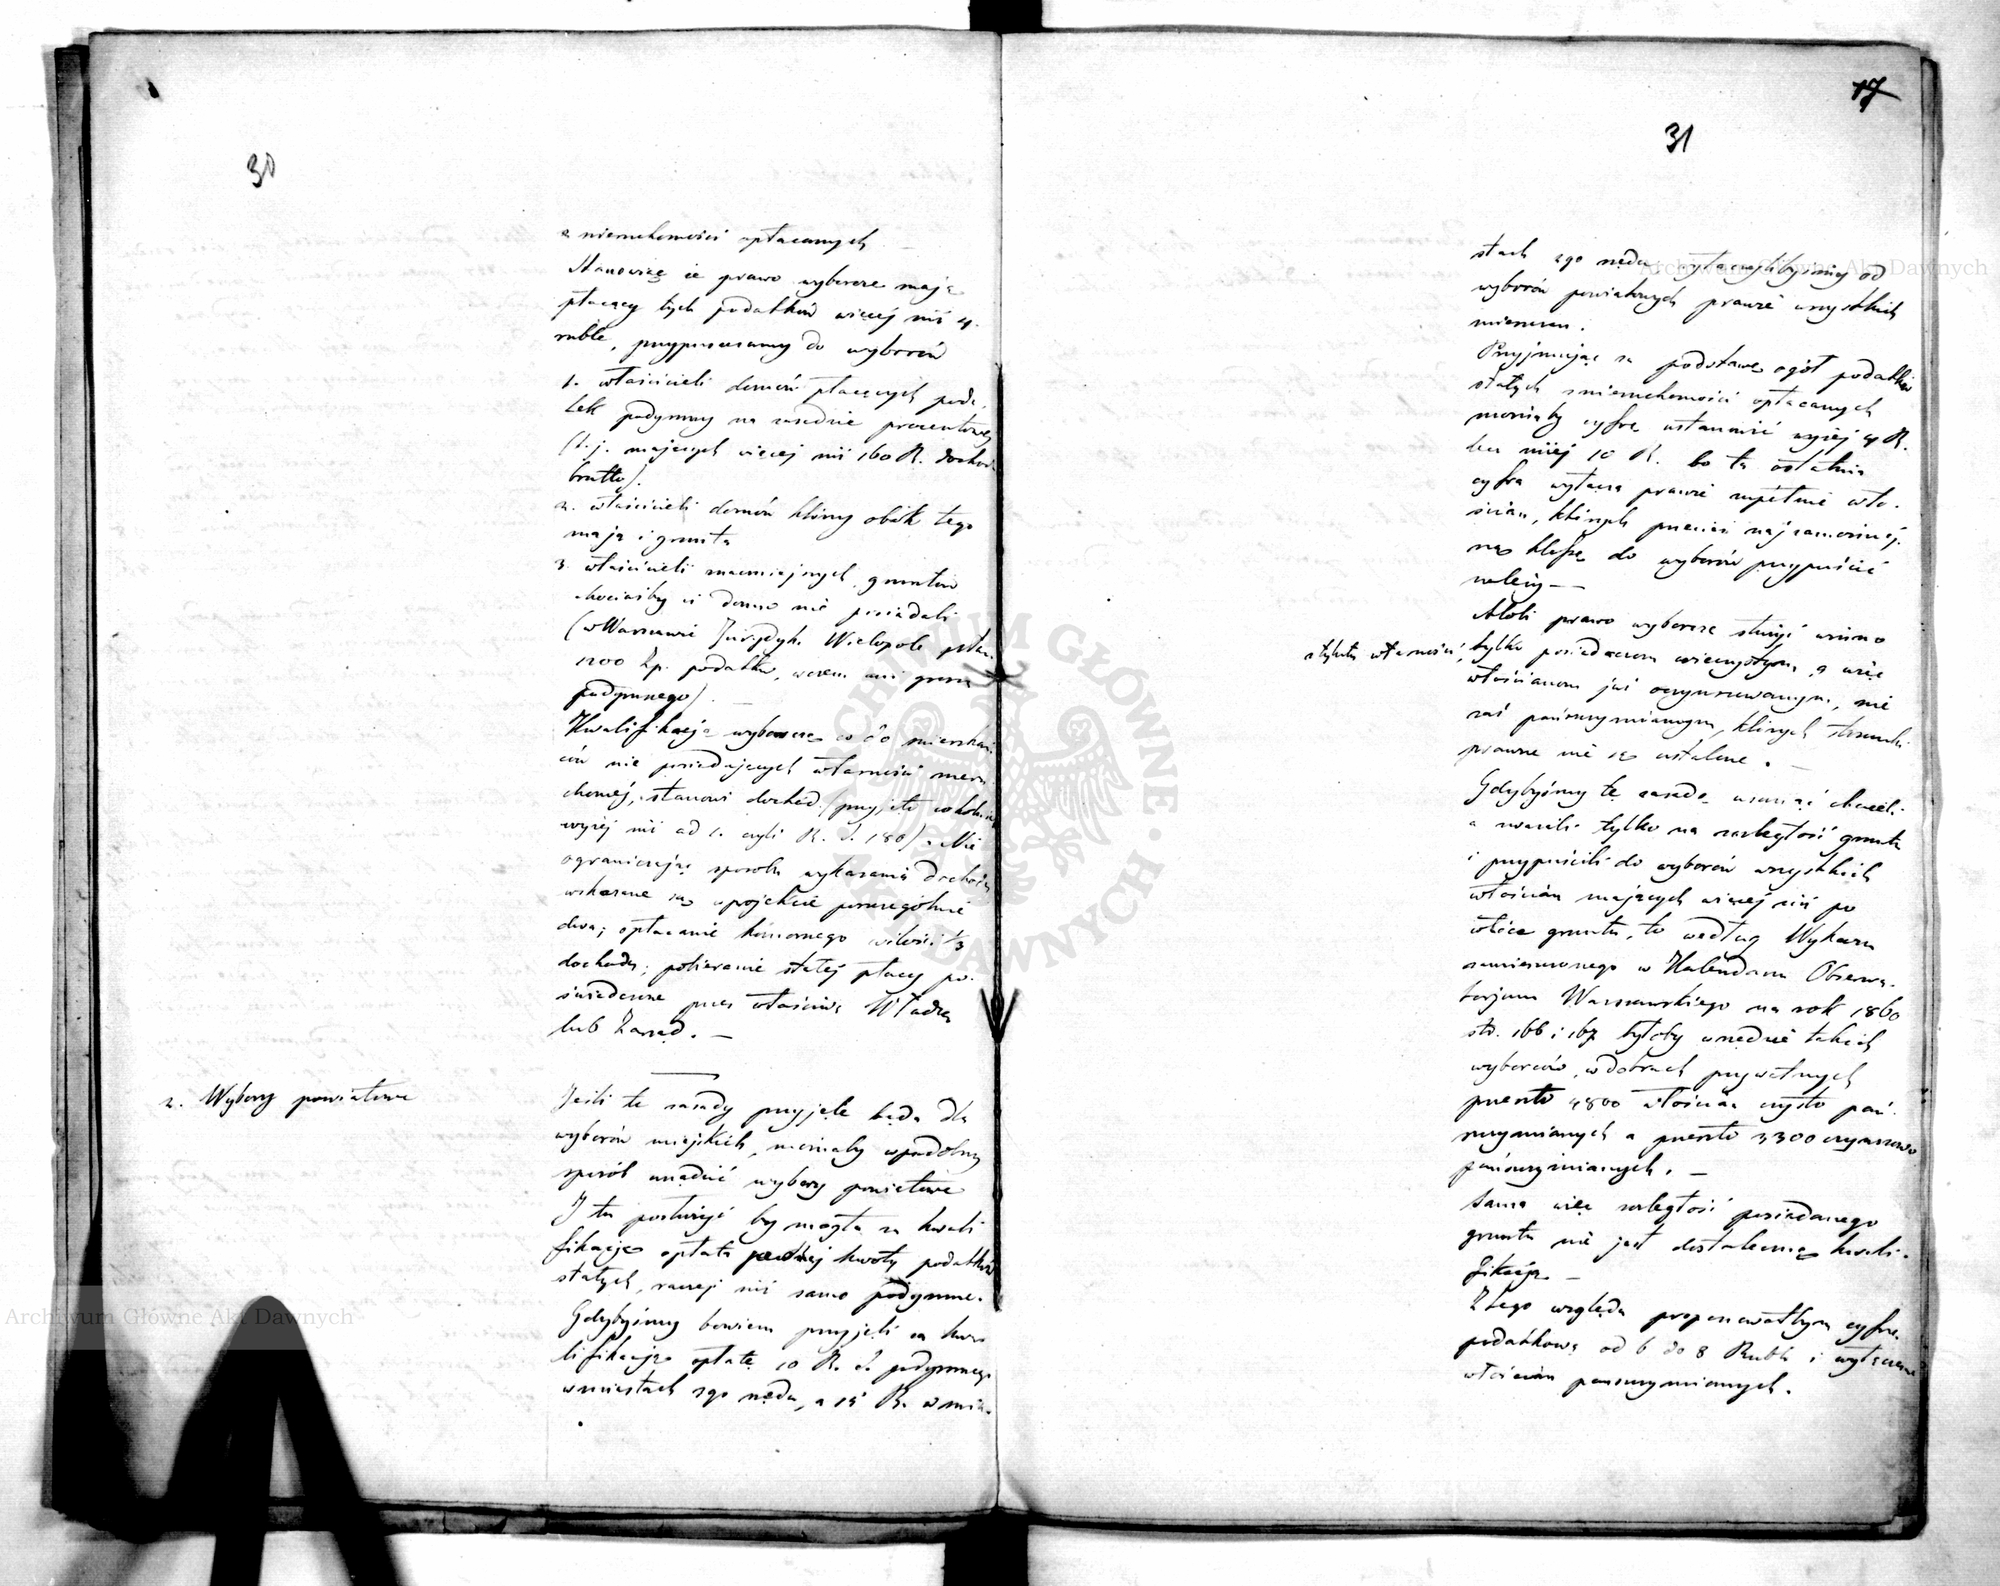 30
z nieruchomości opłacanych
Stanowiąc że prawo wyborcze mają
płacący tych podatków więcej niż 4.
ruble, przypuszczamy do wyborów
1. właścicieli domów płacących poda,
tek podymny na zasadzie procentowej
(t. j. mających więcej niż 160 R. dochodu
brutto).
2. właścicieli domów którzy obok tego
mają i grunta
3. właścicieli znaczniejszych gruntów
chociażby ci domu nie posiadali
(w Warszawie Jurydyka Wielopole płaci
1200 Zp. podatku, wcale ani grosza
podymnego).
Kwalifikacją wyborczą co do mieszkań
ców nie posiadających własności nieru
chomej, stanowi dochód (przyjęto cokolwiek
wyżej niż ad 1. czyli R. S. 180). Nie
ograniczając sposobu wykazania dochodu
wskazane są w projekcie szczególnie
dwa; opłacanie komornego w ilości 1/3
dochodu; pobieranie stałej płacy po-
świadczone przez właściwą Władzę
lub Zarząd. —
2. Wybory powiatowe
Jeśli te zasady przyjęte będą dla
wyborów miejskich, można by w podobny
sposób urządzić wybory powiatowe
I tu posłużyć by mogła za kwali
fikację opłata pewnej kwoty podatków
stałych, raczej niż samo podymne.
Gdybyśmy bowiem przyjęli za kwa
lifikację opłatę 10 R. S. podymnego
w miastach 2go rzędu, a 15 R. w mia-
17
31
stach 1go rzędu wyłączylibyśmy od
wyborów powiatowych prawie wszystkich
mieszczan.
Przyjmując za podstawę ogół podatków
stałych z nieruchomości opłacanych
można by cyfrę ustanowić wyżej 4 R.
lecz niżej 10 R. bo ta ostatnia
cyfra wyłącza prawie zupełnie wło-
ścian, których przecież najzamożniej-
szą klasę do wyborów przypuścić
należy —
Atoli prawo wyborcze służyć winno
z tytułu własności, tylko posiadaczom wieczystym, a więc
włościanom już oczynszowanym, nie
zaś pańszczyźnianym, których stosunki
prawne nie są ustalone. —
Gdybyśmy tę zasadę usunąć chcieli
a zważali tylko na rozległość gruntu
i przypuścili do wyborów wszystkich
włościan mających więcej niż po
włóce gruntu, to według Wykazu
zamieszczonego w Kalendarzu Obserwa-
torjum Warszawskiego na rok 1860
str. 166 i 167 byłoby w rzędzie takich
wyborców, w dobrach prywatnych
przeszło 4800 włościan czysto pań-
szczyźnianych a przeszło 3300 czynszowo
pańszczyźnianych. —
Sama więc rozległość posiadanego
gruntu nie jest dostateczną kwali-
fikacją —
Z tego względu proponowałbym cyfrę
podatkową od 6 do 8 Rubli i wyłączenie
włościan pańszczyźnianych.
Archiwum Główne Akt Dawnych
Archiwum Główne Akt Dawnych
ARCHIWUM GŁÓWNE AKT DAWNYCH